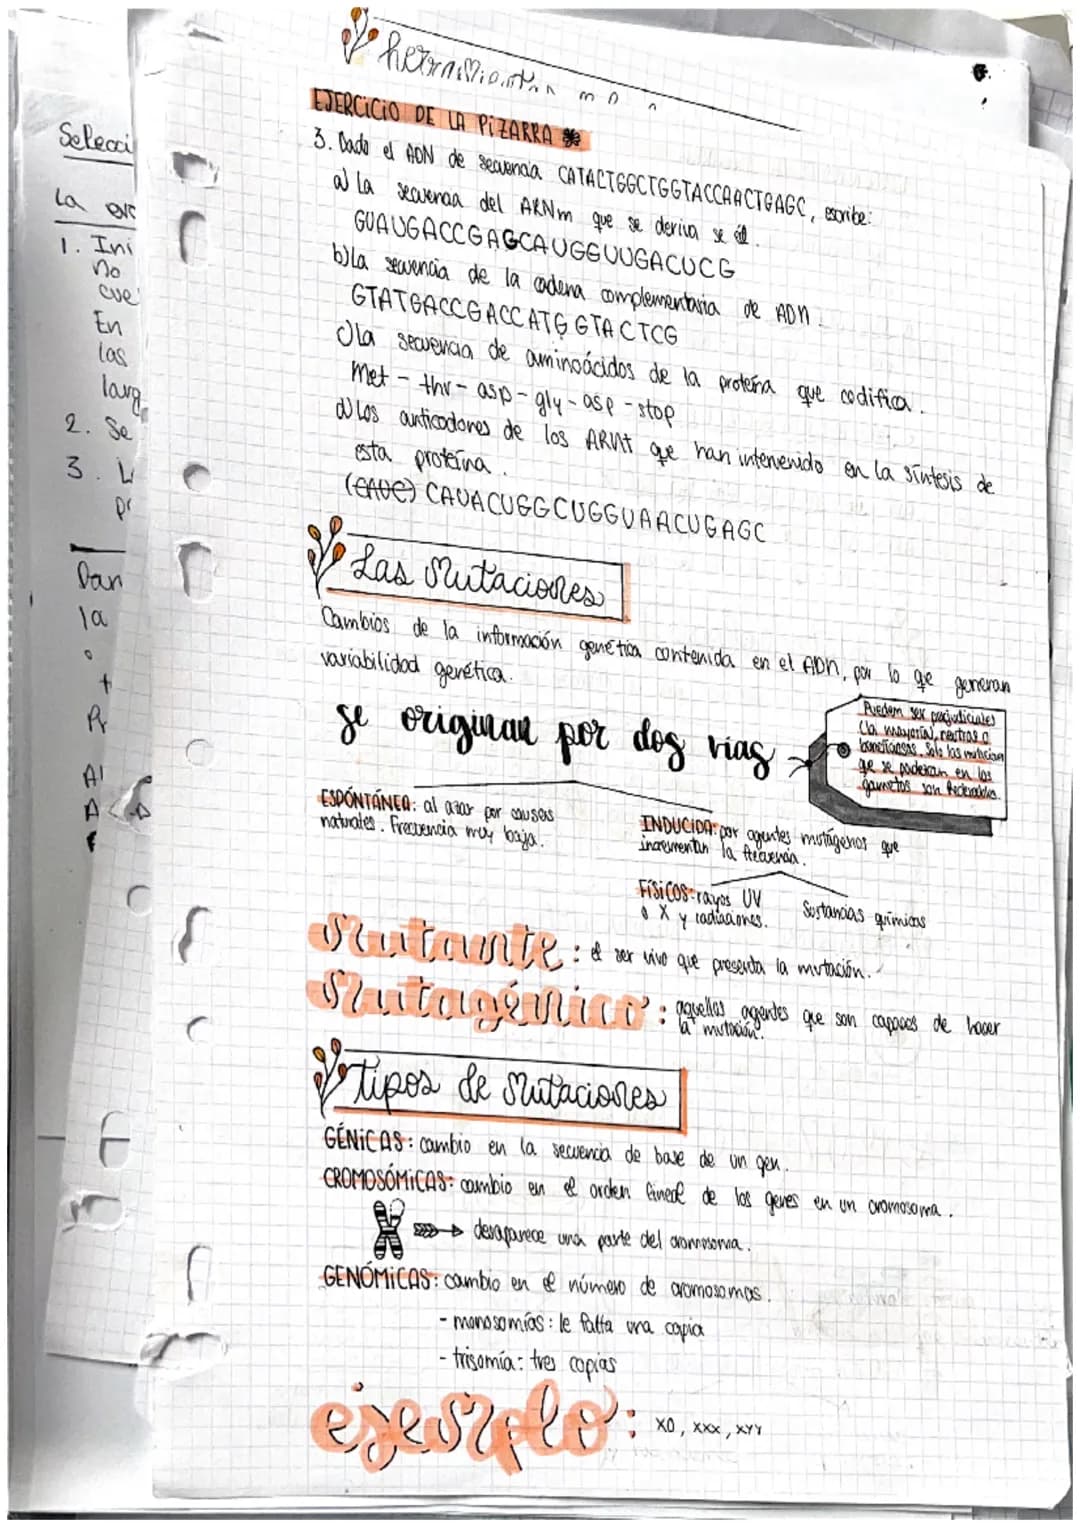 herramientas
EJERCICIO DE LA PIZARRA
3. Dado el ADN de secuencia CATACTGGCTGGTACCAACTGAGC, escribe:
a) La secuencia del ARNm que se deriva se él.
GUAUGACCGAGCAUGGUUGACUCG
b) La secuencia de la cadena complementaria de ADN.
GTATGACCGACCATGGTACTCG
c) La secuencia de aminoácidos de la proteína que codifica.
Met - thr - asp - gly - asp - stop
d) Los anticodones de los ARNt que han intervenido en la síntesis de
esta proteína.
CAUACUGGCUGGUAACUGAGC
Las Mutaciones
Cambios de la información genética contenida en el ADN, por lo que generan
variabilidad genética.
se originan por dos vías
Pueden ser perjudiciales
(la mayoría), neutras o
beneficiosas. Solo las mutaciones
que se producen en los
gametos son heredables.
ESPONTÁNEA: al azar por causas
naturales. Frecuencia muy baja.
INDUCIDA: por agentes mutágenos que
incrementan la frecuencia.
FÍSICOS: rayos UV
o X y radiaciones.
Sustancias químicas
Mutante: el ser vivo que presenta la mutación.
Mutagénico: aquellos agentes que son capaces de hacer
la mutación.
tipos de Mutaciones
GÉNICAS: cambio en la secuencia de base de un gen.
CROMOSÓMICAS: cambio en el orden lineal de los genes en un cromosoma.
desaparece una parte del cromosoma.
GENÓMICAS: cambio en el número de cromosomas.
- monosomías: le falta una copia
- trisomía: tres copias
ejemplo: XO, XXX, XYY
Selecci
La
1. Ini
no
cue
En
las
larg
2. Se
3. L
pr
Dan
la